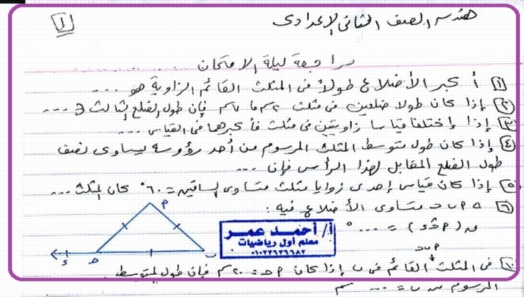 هندسة الصف الثانى الإعدادى
١
مراجعة ليلة الامتحان
١) أكبر الأضلاع طولاً فى المثلث القائم الزاوية هو ...
٢) إذا كان طولا ضلعين فى مثلث ٢سم ، ٧سم فإن طول الضلع الثالث ∈ ...
٣) إذا إختلفا قياسا زاويتين فى مثلث فأكبرهما فى القياس ...
٤) إذا كان طول متوسط المثلث المرسوم من أحد رؤوسه يساوى نصف
طول الضلع المقابل لهذا الرأس فإن ...
٥) إذا كان قياس إحدى زوايا مثلث متساوى الساقين = ٦٠° كان المثلث ...
٦) △ متساوى الأضلاع فيه :
= ... °
أ/ أحمد عمر
معلم أول رياضيات
فى المثلث القائم فى ب إذا كان = ٢٠سم فإن طول المتوسط
المرسوم من ب = ... سم